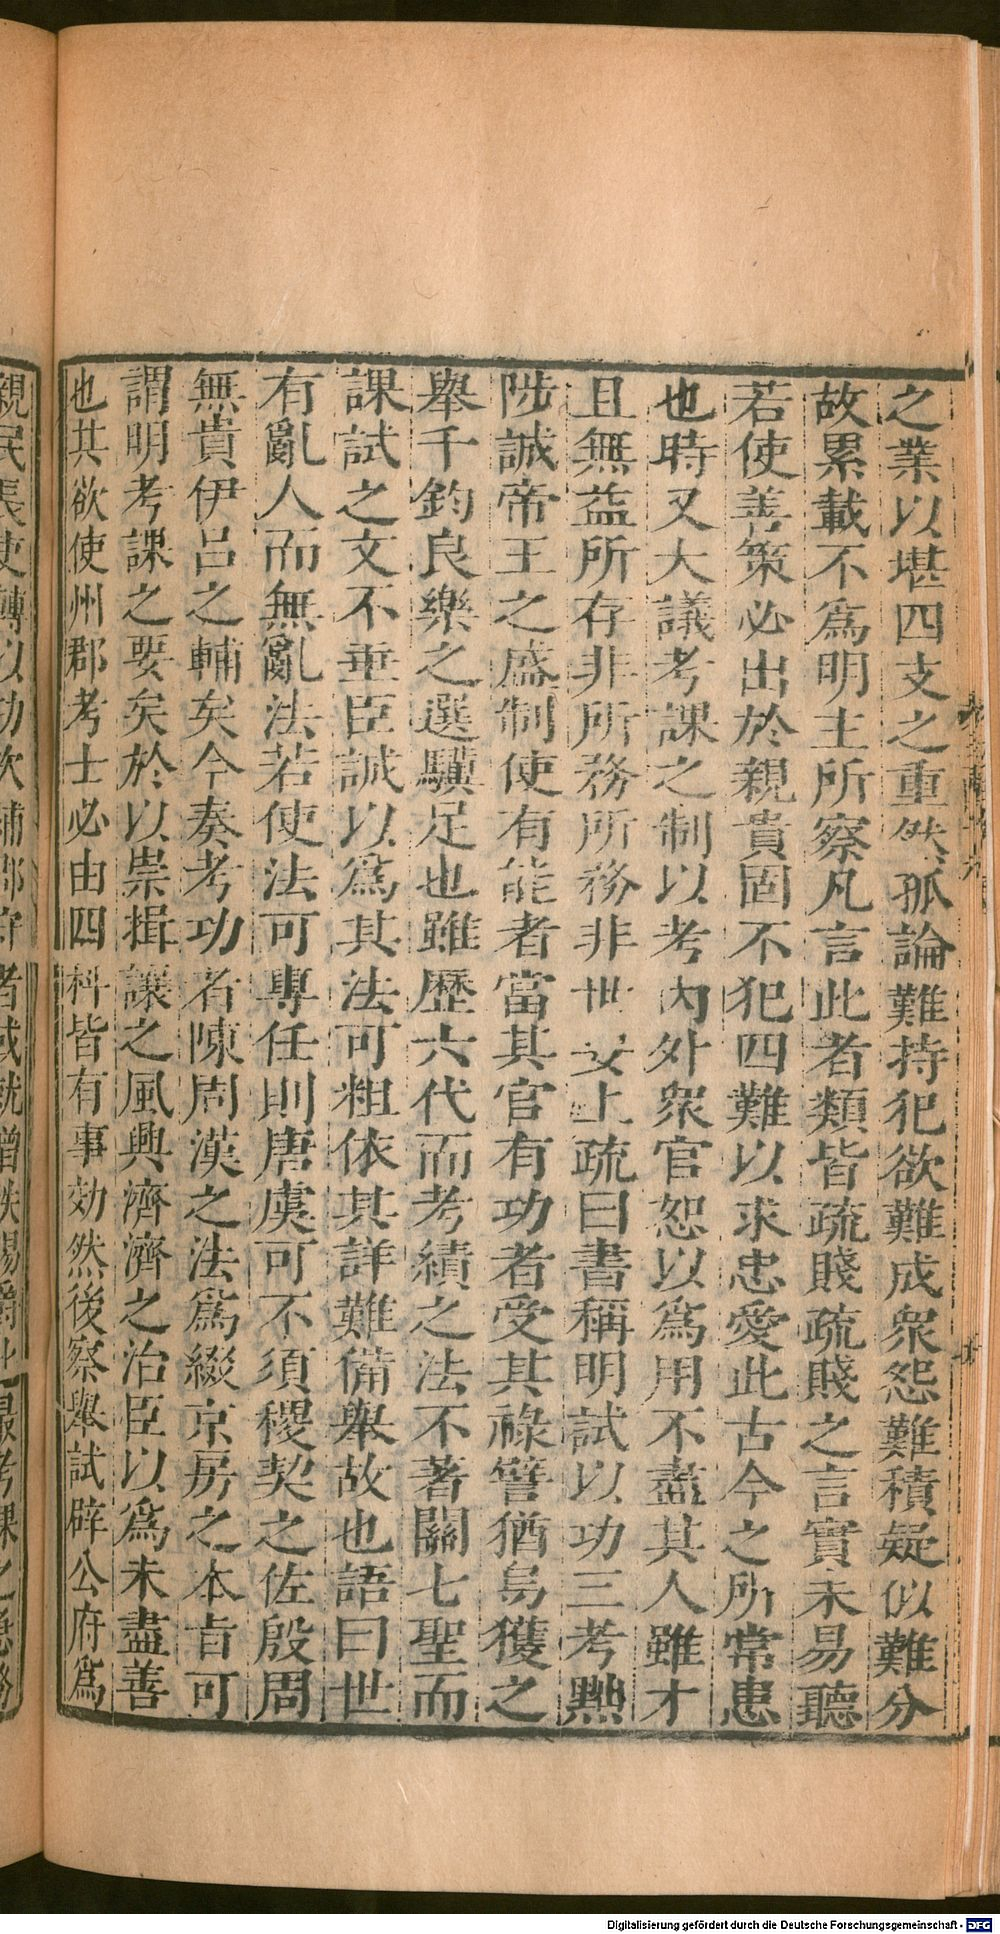 之業以堪四支之重然孤論難持犯欲難成衆怨難積疑似難分
故累載不爲明主所察凡言此者類皆疏賤疏賤之言實未易聽
若使善策必出於親貴固不犯四難以求忠愛此古今之所常患
也時又大議考課之制以考內外衆官恕以爲用不盡其人雖才
且無益所存非所務所務非世要上疏曰書稱明試以功三考黜
陟誠帝王之盛制使有能者當其官有功者受其祿譬猶烏獲之
舉千鈞良樂之選驥足也雖歷六代而考績之法不著關七聖而
課試之文不垂臣誠以爲其法可粗依其詳難備舉故也語曰世
有亂人而無亂法若使法可專任則唐虞可不須稷契之佐殷周
無貴伊呂之輔矣今奏考功者陳周漢之法爲綴京房之本旨可
謂明考課之要矣於以崇揖讓之風興濟濟之治臣以爲未盡善
也其欲使州郡考士必由四科皆有事効然後察舉試辟公府爲
親民長吏轉以功次補郡守者或就增秩賜爵此最考課之急務
Digitalisierung gefördert durch die Deutsche Forschungsgemeinschaft - DFG